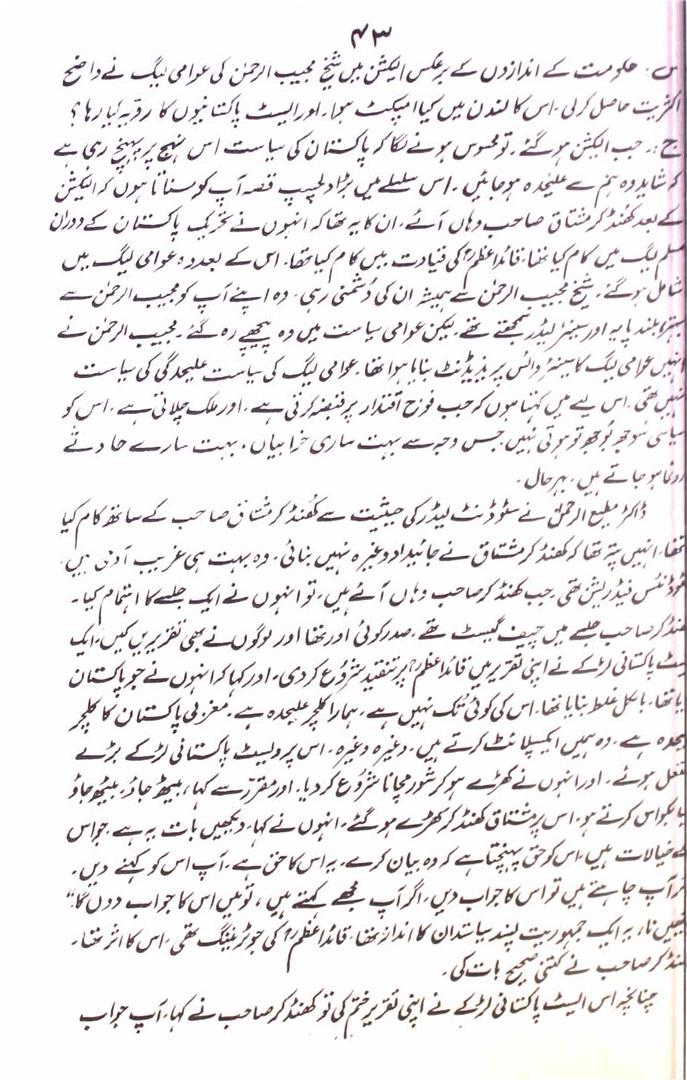 ۴۳
س: حکومت کے اندازوں کے برعکس الیکشن میں شیخ مجیب الرحمٰن کی عوامی لیگ نے واضح
اکثریت حاصل کرلی۔ اس کا لندن میں کیا امپکٹ ہوا۔ اور ایسٹ پاکستانیوں کا رویہ کیا رہا؟
ج:۔ جب الیکشن ہوگئے۔ تو محسوس ہونے لگا کہ پاکستان کی سیاست اس نہج پر پہنچ رہی ہے
کہ شاید وہ ہم سے علیحدہ ہو جائیں۔ اس سلسلے میں بڑا دلچسپ قصہ آپ کو سناتا ہوں کہ الیکشن
کے بعد کھنڈکر مشتاق صاحب وہاں آئے۔ ان کا یہ تھا کہ انہوں نے تحریک پاکستان کے دوران
مسلم لیگ میں کام کیا تھا۔ قائداعظمؒ کی قیادت میں کام کیا تھا۔ اس کے بعد وہ عوامی لیگ میں
شامل ہوگئے۔ شیخ مجیب الرحمٰن سے ہمیشہ ان کی دشمنی رہی۔ وہ اپنے آپ کو مجیب الرحمٰن سے
بہتر، بلند پایہ اور سینئر لیڈر سمجھتے تھے۔ لیکن عوامی سیاست میں وہ پیچھے رہ گئے۔ مجیب الرحمٰن نے
انہیں عوامی لیگ کا سینئر وائس پریذیڈنٹ بنایا ہوا تھا۔ عوامی لیگ کی سیاست علیحدگی کی سیاست
نہیں تھی۔ اس لیے میں کہتا ہوں کہ جب فوج اقتدار پر قبضہ کرتی ہے۔ اور ملک چلاتی ہے۔ اس کو
سیاسی سوجھ بوجھ تو ہوتی نہیں جس وجہ سے بہت ساری خرابیاں، بہت سارے حادثے
رونما ہو جاتے ہیں۔ بہرحال۔
ڈاکٹر مطیع الرحمٰن نے سٹوڈنٹ لیڈر کی حیثیت سے کھنڈکر مشتاق صاحب کے ساتھ کام کیا
تھا۔ انہیں پتہ تھا کہ کھنڈکر مشتاق نے جائیداد وغیرہ نہیں بنائی۔ وہ بہت ہی غریب آدمی ہیں۔
سٹوڈنٹس فیڈریشن تھی۔ جب کھنڈکر صاحب وہاں آئے ہیں، تو انہوں نے ایک جلسے کا اہتمام کیا۔
کھنڈکر صاحب جلسے میں چیف گیسٹ تھے۔ صدر کوئی اور تھا اور لوگوں نے بھی تقریریں کیں۔ ایک
ایسٹ پاکستانی لڑکے نے اپنی تقریر میں قائداعظمؒ پر تنقید شروع کردی۔ اور کہا کہ انہوں نے جو پاکستان
بنایا تھا۔ بالکل غلط بنایا تھا۔ اس کی کوئی تک نہیں ہے۔ ہمارا کلچر علیحدہ ہے۔ مغربی پاکستان کا کلچر
علیحدہ ہے۔ وہ ہمیں ایکسپلائٹ کرتے ہیں۔ وغیرہ وغیرہ۔ اس پر ویسٹ پاکستانی لڑکے بڑے
مشتعل ہوئے۔ اور انہوں نے کھڑے ہو کر شور مچانا شروع کردیا۔ اور مقرر سے کہا، بیٹھ جاؤ، بیٹھ جاؤ
کیا بکواس کرتے ہو۔ اس پر مشتاق کھنڈکر کھڑے ہوگئے۔ انہوں نے کہا۔ دیکھیں بات یہ ہے۔ جو اس
کے خیالات ہیں، اس کو حق پہنچتا ہے کہ وہ بیان کرے۔ یہ اس کا حق ہے۔ آپ اس کو کہنے دیں۔
اگر آپ چاہتے ہیں تو اس کا جواب دیں۔ اگر آپ مجھے کہتے ہیں، تو میں اس کا جواب دوں گا۔"
دیکھیں نا، یہ ایک جمہوریت پسند سیاستدان کا انداز تھا۔ قائداعظمؒ کی جو ٹریننگ تھی۔ اس کا اثر تھا۔
کھنڈکر صاحب نے کتنی صحیح بات کی۔
چنانچہ اس ایسٹ پاکستانی لڑکے نے اپنی تقریر ختم کی تو کھنڈکر صاحب نے کہا۔ آپ جواب